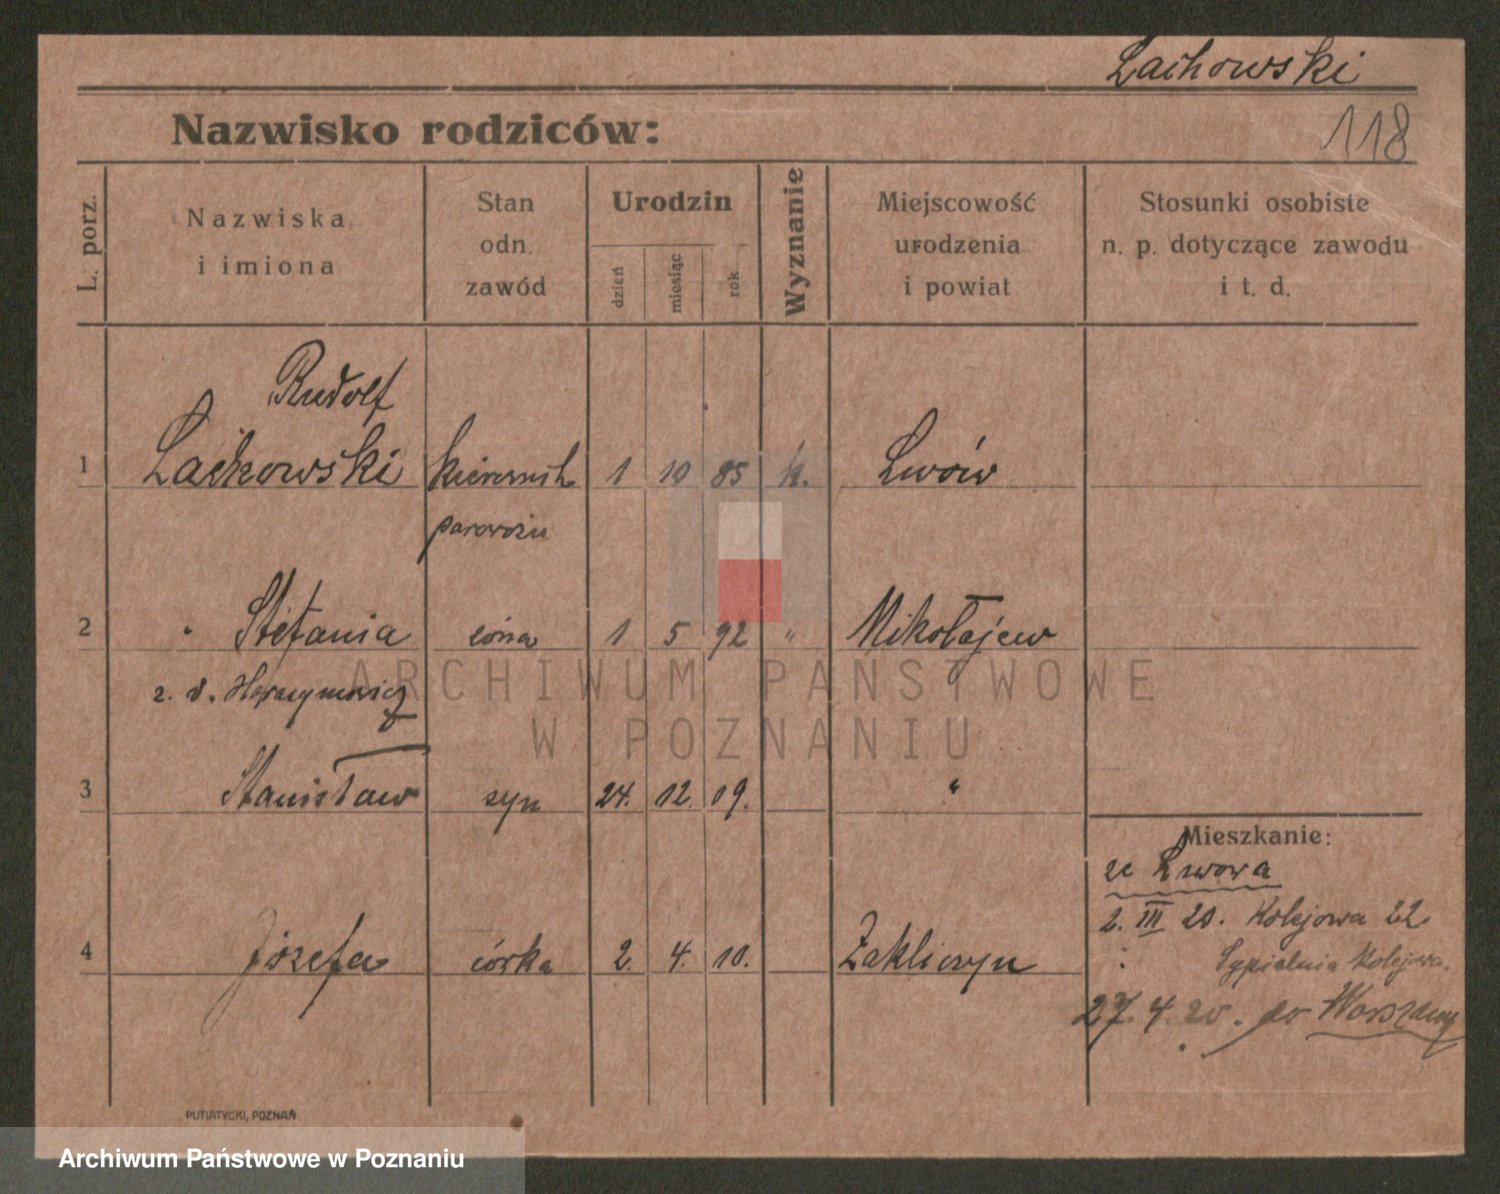 Lachowski
Nazwisko rodziców:
118
L. porz.
Nazwiska
i imiona
Stan
odn.
zawód
Urodzin
dzień
miesiąc
rok
Wyznanie
Miejscowość
urodzenia
i powiat
Stosunki osobiste
n. p. dotyczące zawodu
i t. d.
Rudolf
1 Lachowski kierownik 1 10 85 k. Lwów
parowozu
2 " Stefania żona 1 5 92 " Mikołajew
z. d.
3 Stanisław syn 24. 12. 19. "
Mieszkanie:
ze Lwowa
2. III 20. Kolejowa 22.
4 Józefa córka 2. 4. 10. Zakliczyn
Sypialnia Kolejowa.
27. 4. 20. do Warszawy
PUTIATYCKI, POZNAŃ
ARCHIWUM PAŃSTWOWE
W POZNANIU
Archiwum Państwowe w Poznaniu